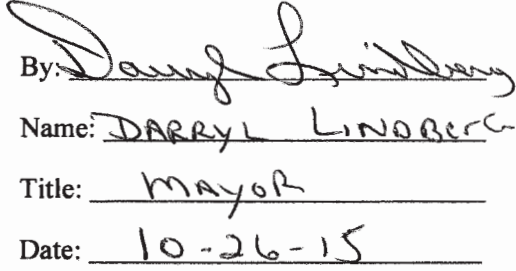 By: Darryl Lindberg
Name: DARRYL LINDBERG
Title: MAYOR
Date: 10-26-15